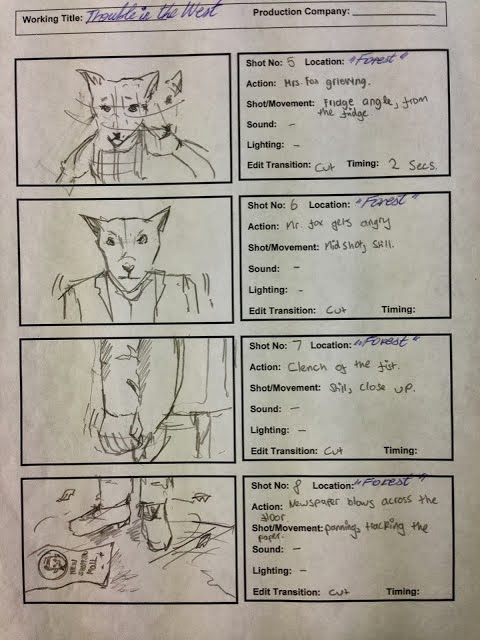 Working Title: Trouble in the West Production Company:
Shot No: 5 Location: "Forest"
Action: Mrs. Fox grieving.
Shot/Movement: Fridge angle, from
the fridge
Sound: -
Lighting: -
Edit Transition: Cut Timing: 2 Secs.
Shot No: 6 Location: "Forest"
Action: Mr. fox gets angry
Shot/Movement: Mid shot, Still.
Sound: -
Lighting: -
Edit Transition: Cut Timing:
Shot No: 7 Location: "Forest"
Action: Clench of the fist.
Shot/Movement: Still, close up.
Sound: -
Lighting: -
Edit Transition: Cut Timing:
Shot No: 8 Location: "Forest"
Action: Newspaper blows across the
floor.
Shot/Movement: panning, tracking the
paper.
Sound: -
Lighting: -
Edit Transition: Cut Timing: